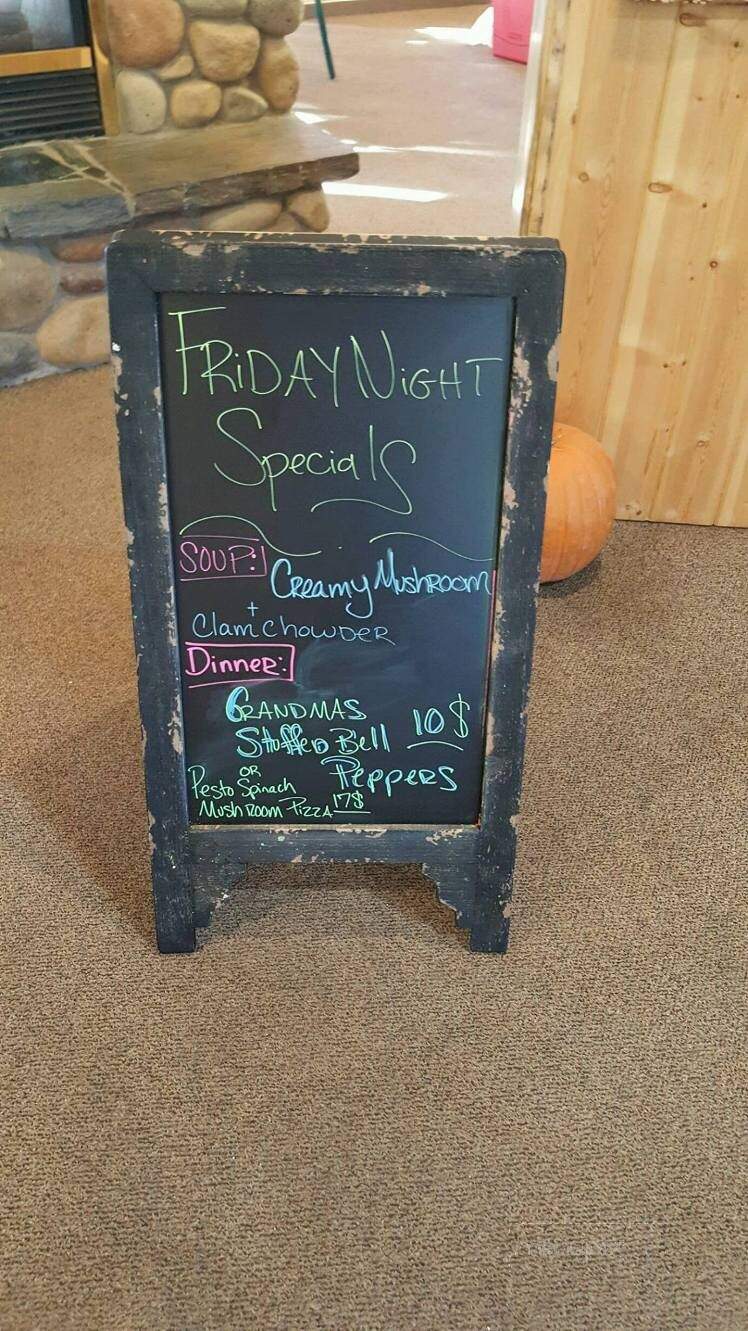 FRiDAY NiGHT
Specials
SOUP: Creamy MushRoom
+
Clam chowDER
DinneR:
GRANDMAS 10$
StuffeD Bell
PeppeRs
OR
Pesto Spinach
Mush Room PizzA 17$